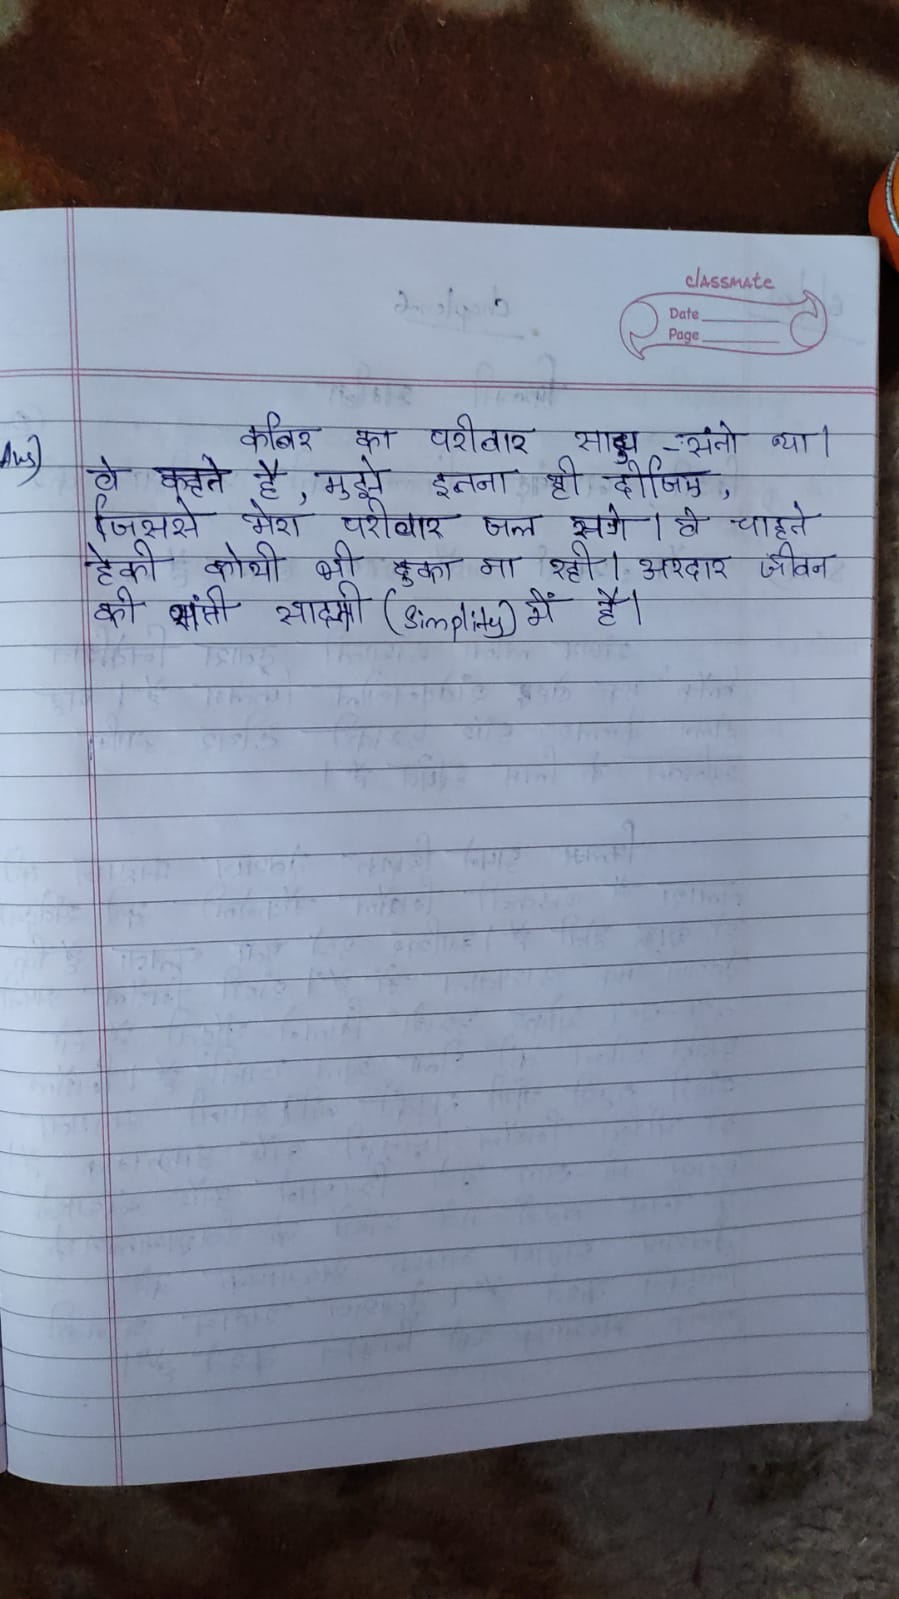 classmate
Date
Page
Ans) कबिर का परीवार साधु - संतो था।
वे कहते है, मुझे इतना ही दीजिए,
जिससे मेरा परीवार जल सगे। वे चाहते
हेकी कोयी भी रही। जीवन
की सादगी (simplity) में है।